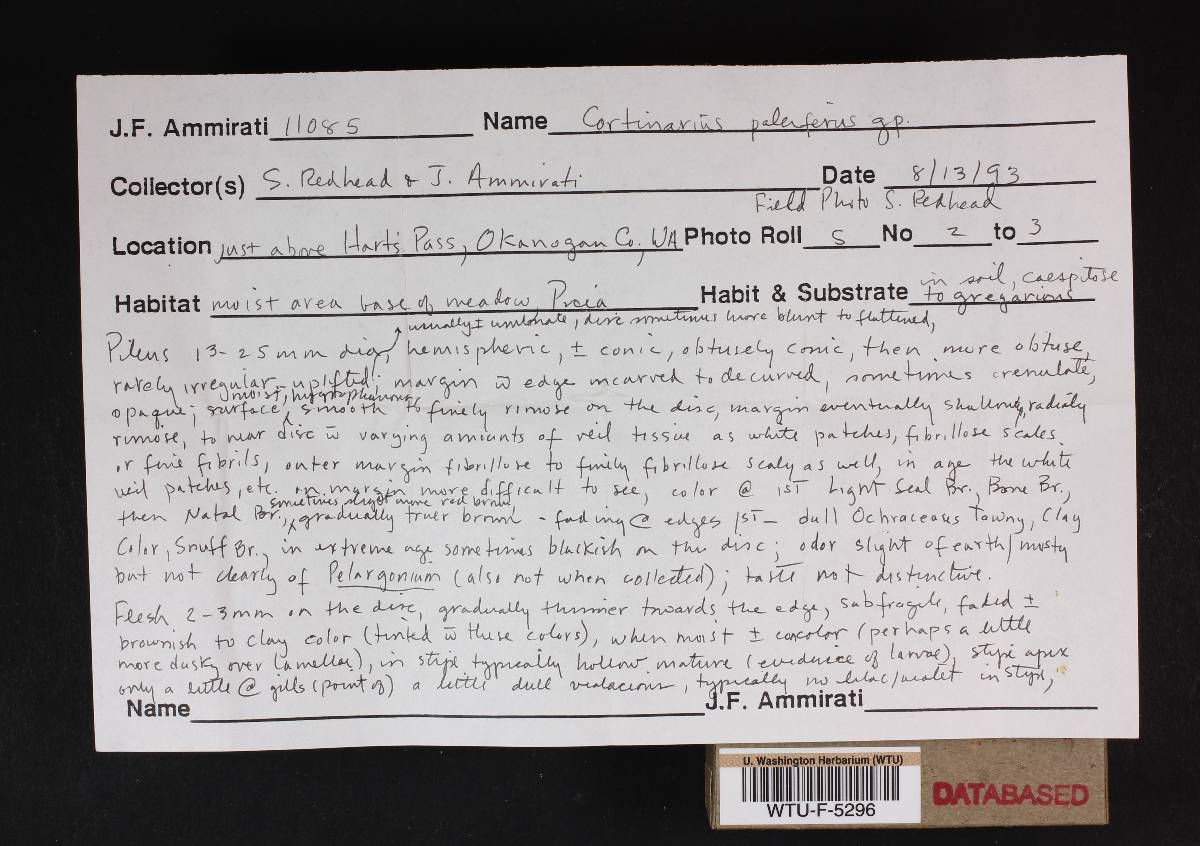 J.F. Ammirati 11085 Name Cortinarius paleiferus gp.
Collector(s) S. Redhead & J. Ammirati Date 8/13/93
Field Photo S. Redhead
Location just above Harts Pass, Okanogan Co., WA Photo Roll S No 2 to 3
Habitat moist area base of meadow, Picia Habit & Substrate in soil, caespitose to gregarious
usually ± umbonate, disc sometimes more blunt to flattened,
Pileus 13-25mm dia, hemispheric, ± conic, obtusely conic, then more obtuse,
rarely irregular - uplifted; margin w̄ edge incurved to decurved, sometimes crenulate,
moist, hygrophanous,
opaque; surface smooth to finely rimose on the disc, margin eventually radialy
rimose, to near disc w̄ varying amounts of veil tissue as white patches, fibrillose scales
or fine fibrils, outer margin fibrillose to finely fibrillose scaly as well, in age the white
veil patches, etc. on margin more difficult to see, color @ 1st Light Seal Br., Bone Br.,
sometimes slight more red brown,
then Natal Br., gradually truer brown - fading @ edges 1st - dull Ochraceous Tawny, Clay
Color, Snuff Br., in extreme age sometimes blackish on the disc; odor slight of earth/musty
but not clearly of Pelargonium (also not when collected); taste not distinctive.
Flesh 2-3mm on the disc, gradually thinner towards the edge, subfragile, faded ±
brownish to clay color (tinted w̄ these colors), when moist ± concolor (perhaps a little
more dusky over lamellae), in stipe typically hollow mature (evidence of larvae), stipe apex
only a little @ gills (point of) a little dull violacious, typically no lilac/violet in stipe,
Name J.F. Ammirati
U. Washington Herbarium (WTU)
WTU-F-5296
DATABASED